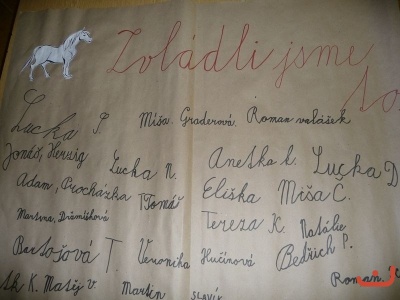 Zvládli jsme
to
Lucka S. Míša Graderová Roman valášek
Jonáš, Herzig Lucka N. Anetka k. Lucka D
Adam, Procházka Tomáš Eliška Míša C.
Martina, Tereza K. Natálie
Bartošová T. Veronika Hučínová Bedřich P.
K. Matěj V. Martin SLAVÍK Roman